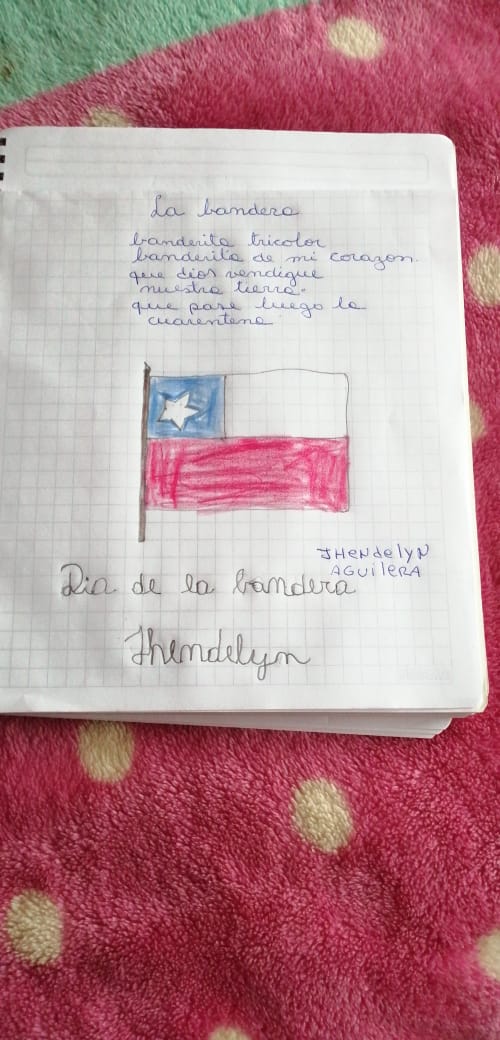 La bandera
banderita tricolor
banderita de mi corazon.
que dios vendigue
nuestra tierra.
que pase luego la
cuarentena
JHendelyN
AGUilERA
Dia de la bandera
Jhendelyn